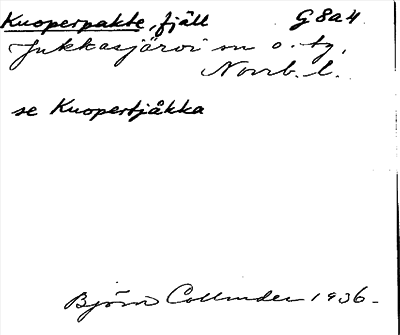 Kuoperpakte, fjäll G 8a4
Jukkasjärvi sn o. tg,
Norrb. l.
se Kuopertjåkka
Björn Collinder 1936-